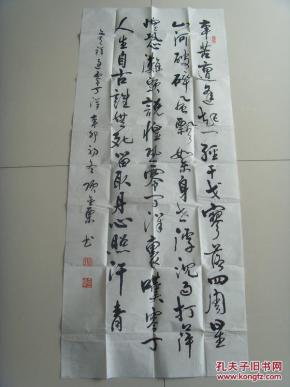 辛苦遭逢起一經干戈寥落四周星
山河破碎風飄絮身世浮沉雨打萍
惶恐灘頭說惶恐零丁洋裏嘆零丁
人生自古誰無死留取丹心照汗青
文天祥過零丁洋 辛卯初冬 項東書